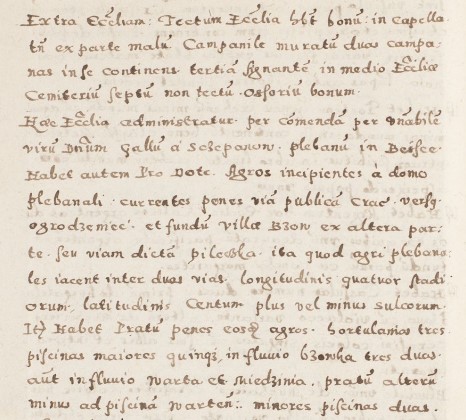 Extra Eccliam: Tectum Ecclia hbt bonu: in capella
tn ex parte malu. Campanile muratu duas campa-
nas in se continens tertia signante in medio Eccliæ
Cemiteriu septu non tectu. Ossoriu bonum.
Hæc Ecclia administratur per comenda per vnabile
viru Dnum Gallu à Szczepanow, plebanu in
Habet autem Pro Dote. Agros incipientes à domo
plebanali. currentes penes via publica Crac. versq
ogrodzeniec. et fundu villæ Bzow ex altera par-
te. seu viam dicta pilewska. ita quod agri plebana:
les iacent inter duas vias, longitudinis quatuor stadi
orum, latitudinis Centum plus vel minus sulcorum.
Ite Habet Pratu penes eosq agros. hortulanios tres.
piscinas maiores quinq, in fluvio bzowka tres duas.
aut in fluvio warta et Miedzinia. pratu alteru
minus ad piscina warten: minores piscinas duas.